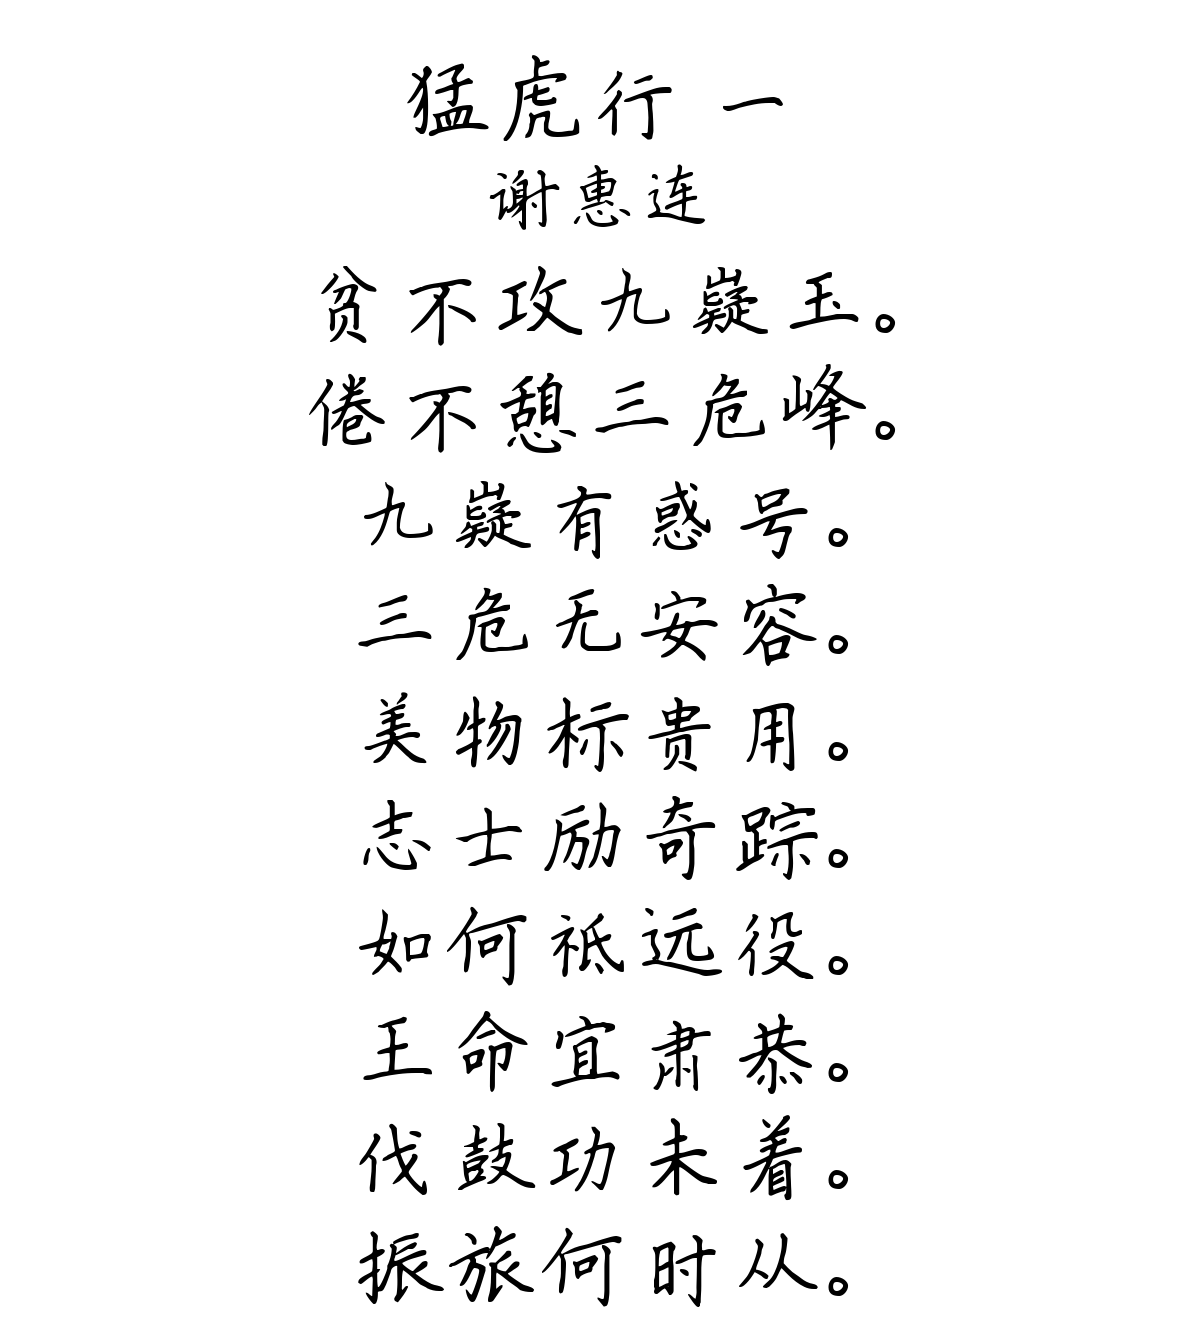 猛虎行 一
谢惠连
贫不攻九嶷玉。
倦不憩三危峰。
九嶷有惑号。
三危无安容。
美物标贵用。
志士励奇踪。
如何祗远役。
王命宜肃恭。
伐鼓功未着。
振旅何时从。